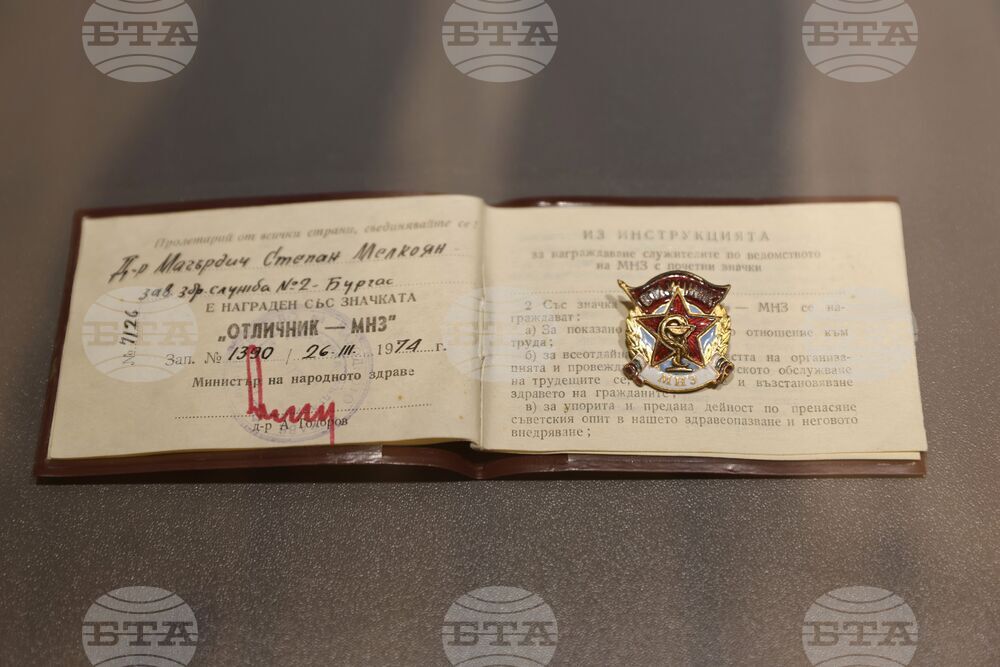 БТА БТА БТА
Пролетарии от всички страни, съединявайте се!
Д-р Магърдич Степан Мелкоян
зав. здр. служба №2 - Бургас
Е НАГРАДЕН СЪС ЗНАЧКАТА
„ОТЛИЧНИК — МНЗ"
Зап. № 1390 / 26. III. 1974 г.
Министър на народното здраве
д-р А. Тодоров
№ 7126
ИЗ ИНСТРУКЦИЯТА
за награждаване служителите по ведомството
на МНЗ с почетни значки
2 Със значка — МНЗ се на-
граждават:
а) За показано отношение към
труда;
б) за всеотдайно на организа-
цията и провежд ското обслужване
на трудещите се, и възстановяване
здравето на гражданите;
в) за упорита и предана дейност по пренасяне
съветския опит в нашето здравеопазване и неговото
внедряване;
МНЗ
БТА БТА БТА
БТА БТА БТА